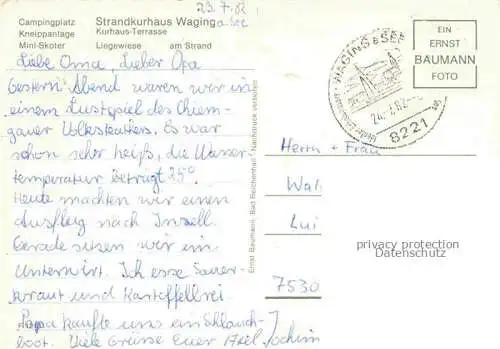 23.7.82
Campingplatz
Kneippanlage
Mini-Skoter
Strandkurhaus Waging a. See
Kurhaus-Terrasse
Liegewiese am Strand
Liebe Oma, Lieber Opa
Gestern Abend waren wir in
einem Lustspiel des Chiem-
gauer Volkstheaters. Es war
schon sehr heiß, die Wasser-
temperatur beträgt 25°.
Heute machten wir einen
Ausflug nach Inzell.
Gerade sitzen wir im
Unterwirt. Ich esse Sauer-
kraut und Kartoffelbrei.
Papa kaufte uns ein Schlauch-
boot. Viele Grüsse Euer Axel Jochim
Ernst Baumann, Bad Reichenhall - Nachdruck verboten
WAGING a SEE
24.7.82
8221
EIN
ERNST
BAUMANN
FOTO
Herrn + Frau
Wal
Lui
privacy protection
Datenschutz
7530